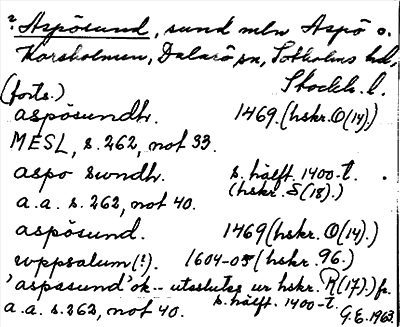 ? Aspösund, sund mln Aspö o.
Korsholmen, Dalarö sn, Sotholms hd,
Stockh. l.
(forts.)
aspösundh. 1469. (hskr. O(14).)
MESL, s. 262, not 33.
aspo sundh. s. hälft. 1400-t.
(hskr. S(18).)
a.a. s. 262, not 40.
aspösund. 1469 (hskr. O(14).)
uppsalum(!). 1604-05 (hskr. 96.)
'aspssund' ok-- utsslutss ur hskr. R(17).) fr.
s. hälft. 1400-t.
a.a. s. 262, not 40. G.E. 1963.